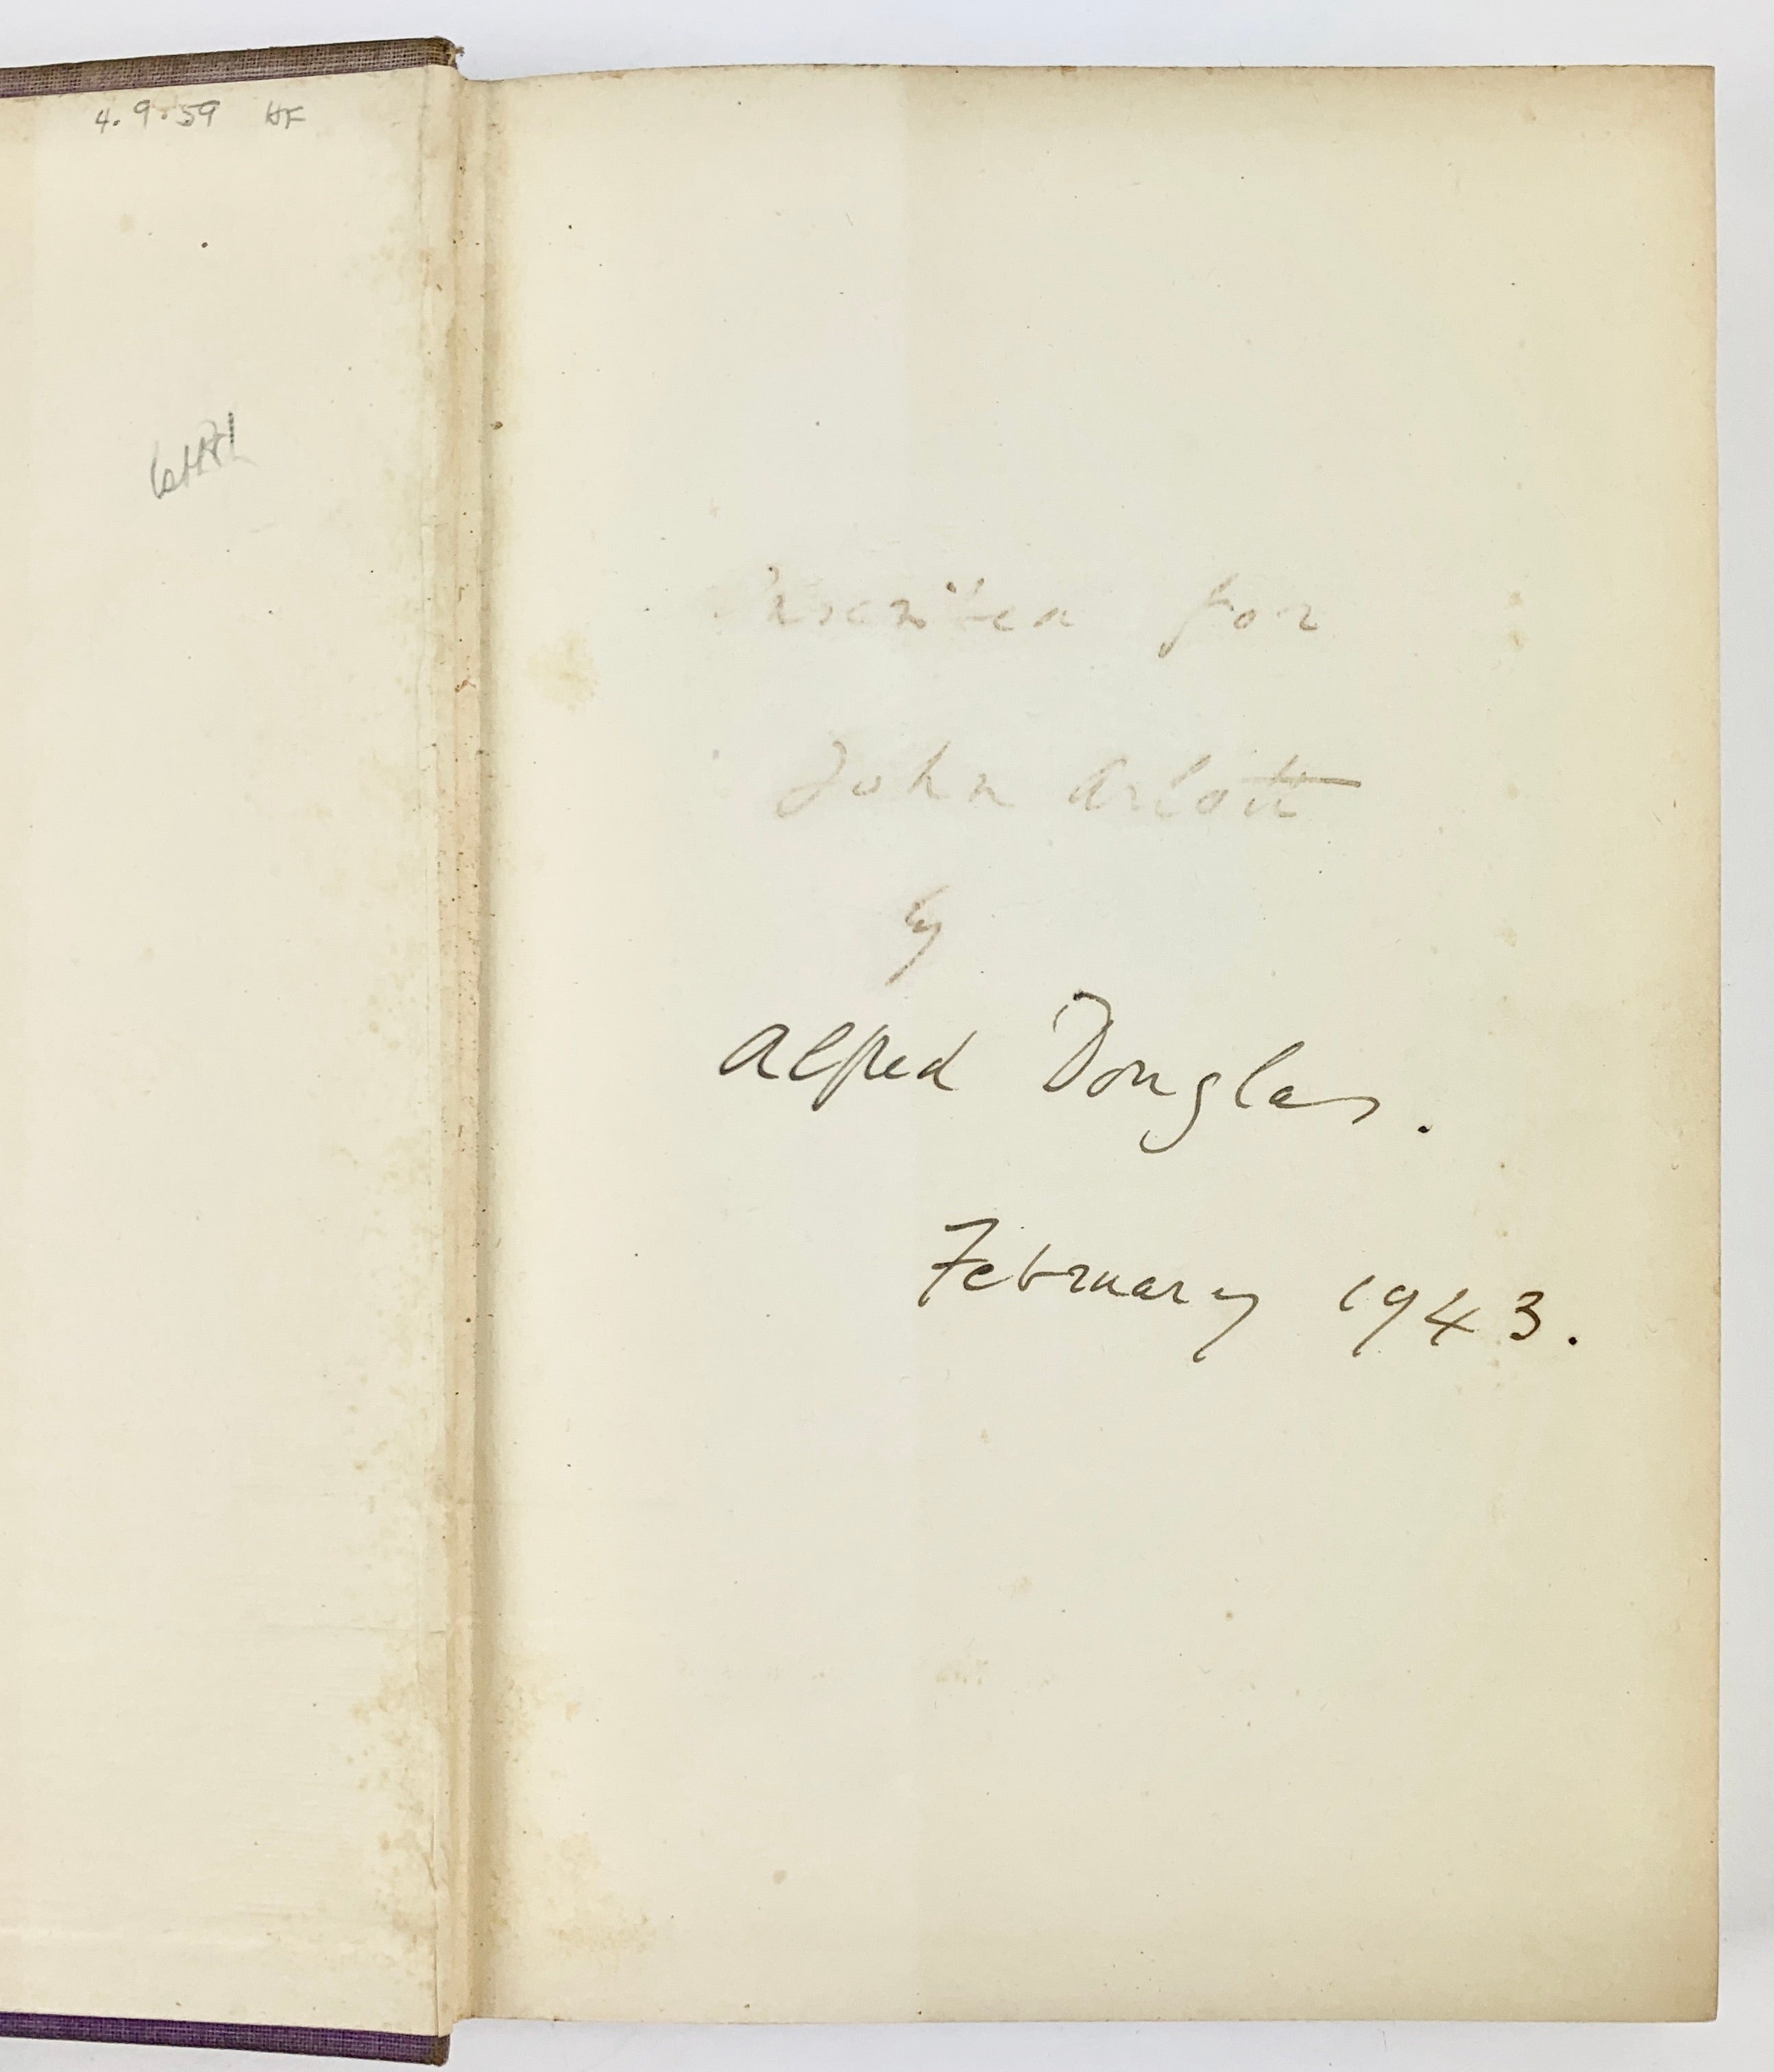 4.9.59 HF
Inscribed for
John Arlott
by
Alfred Douglas.
February 1943.